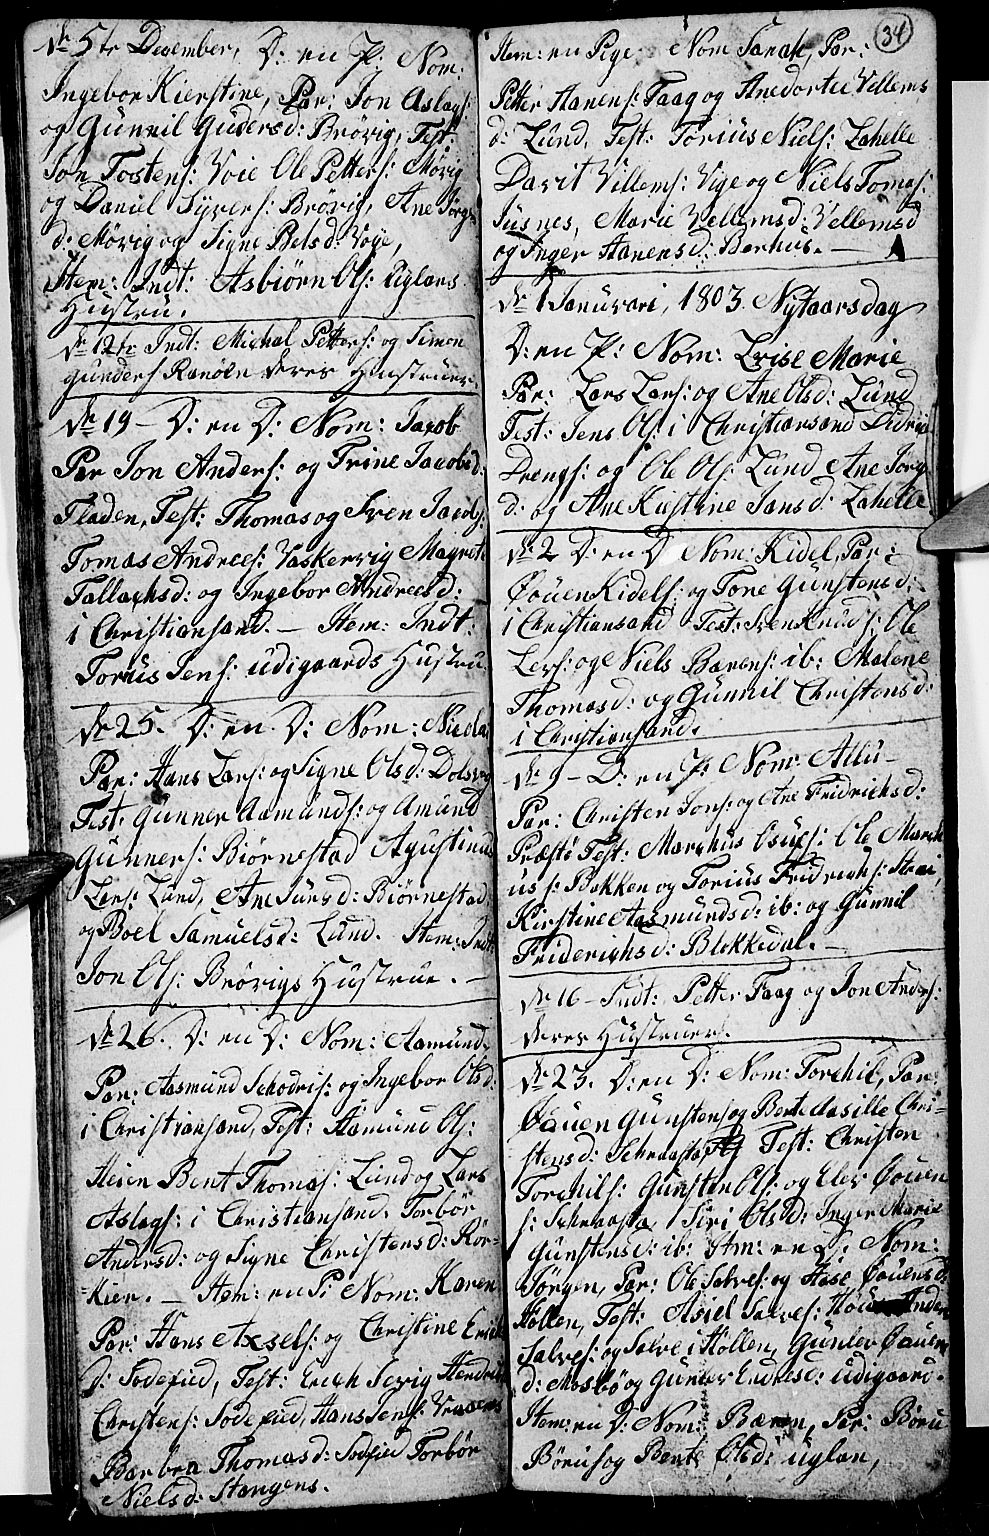 dr 5te December, D: en P: Nom:
Ingebor Kierstine, Par: Jon Aslags:
og Gunnil Gudersd: Brövig, Test:
Jon Tostens: Voie Ole Petters: Mövig
og Daniel Syvers: Brövig, Ane Jörgs
d: Mövig og Signe Belsd: Voje,
Item: Indt: Asbiörn Ols: Uglans
Hustru.
dr 12te Indt: Michal Petters: og Simon
gunders Ranöen deres Hustruer.
dr 19 – D: en D: Nom: Jacob
Par Jon Anders: og Trine Jacobsd:
Fladen, Test: Thomas og Sven Jacobs:
Tomas Andrees: Vaskervig Magrete
Tallachsd: og Ingebor Andreesd:
i Christiansand. – Item: Indt:
Torius Jens: udigaards Hustru
dr 25. D: en D: Nom: Nicolai
Par: Hans Lars: og Signe Olsd: Dolsveg
Test: Gunner Aamunds: og Amund
Gunners: Biörnestad Agustinus
Lars: Lund, Ane Jursd: Biörnestad
og Boel Samuelsd: Lund. Item: Indt:
Jon Ols: Brövigs Hustrue. –
dr 26. D: en D: Nom: Aamund,
Par: Aasmund Schodris: og Ingebor Olsd:
i Christiansand, Test: Aamund Ols:
Heien Bent Thomas: Lund og Lars
Aslags: i Christiansand. Torbör
Andersd: og Signe Christensd: Rör-
kier. – Item: en P: Nom: Karen
Par: Hans Axsels: og Christine Erichs
d: Sodefied, Test: Erich Sevig Hendrich
Christens: Sodefied, Hans Jens: Vraaens
Barbra Thomasd: Sodefied Torbör
Nielsd: Stangens.
34
Item: en Pige Nom Sarah, Par:
Petter Hanens: Faag og Anedortee Villems
d: Lund, Test: Torius Niels: Lahelle
Davit Villems: Vige og Niels Tomas:
Jusnes, Marie Vellemsd: Vellemsd
og Inger Hanensd: Barhus. –
dr 1 Januvari, 1803. Nytaarsdag
D: en P: Nom: Lvise Marie
Par: Lars Lars: og Ane Olsd: Lund
Test: Jens Ols: i Christiansand Didrich
Drengs: og Ole Ols: Lund Ane Jörgs
d: og Ane Kirstine Jansd: Lahelle
dr 2 D: en D Nom: Kidel, Par:
Öouen Kidels: og Tone Gunstensd:
i Christiansand Test: Sven Knuds: Ole
Lers: og Niels Barens: ib: Malene
Thomasd: og Gunnil Christensd:
i Christiansand.
dr 9 – D: en P: Nom: Allu –
Par: Christen Jons: og Ane Fridrichsd:
Præstö Test: Marchus Osufs: Ole March
us s: Bakken og Torius Fridrichs: Straai,
Kirstine Aasmundsd: ib: og Gunnil
Friderichsd: Blokkedal. –
dr 16 – Indt: Petter Faag og Jon Anders:
deres Hustruer.
dr 23. D: en D: Nom: Torchil, Par:
Öouen Gunstens og Bente Aasille Chri-
stensd: Schraastad Test: Christen
Torchils: Gunsten Ols: og Elev Öouen
s: Schraasta Siri Olsd: Inger Marie
Gunstensd: ib: Item: en D: Nom:
Jörgen, Par: Ole Salves: og Aase Öouensd:
Höllen, Test: Asiel Salves: Höie Ander
Salves: og Salve i Höllen, Gunlev Öouen
d: Mosbö og Gunvor Endresd: udigaard.
Item: en D: Nom: Baren, Par: Böru
Börus og Bente Olsd: uglan,